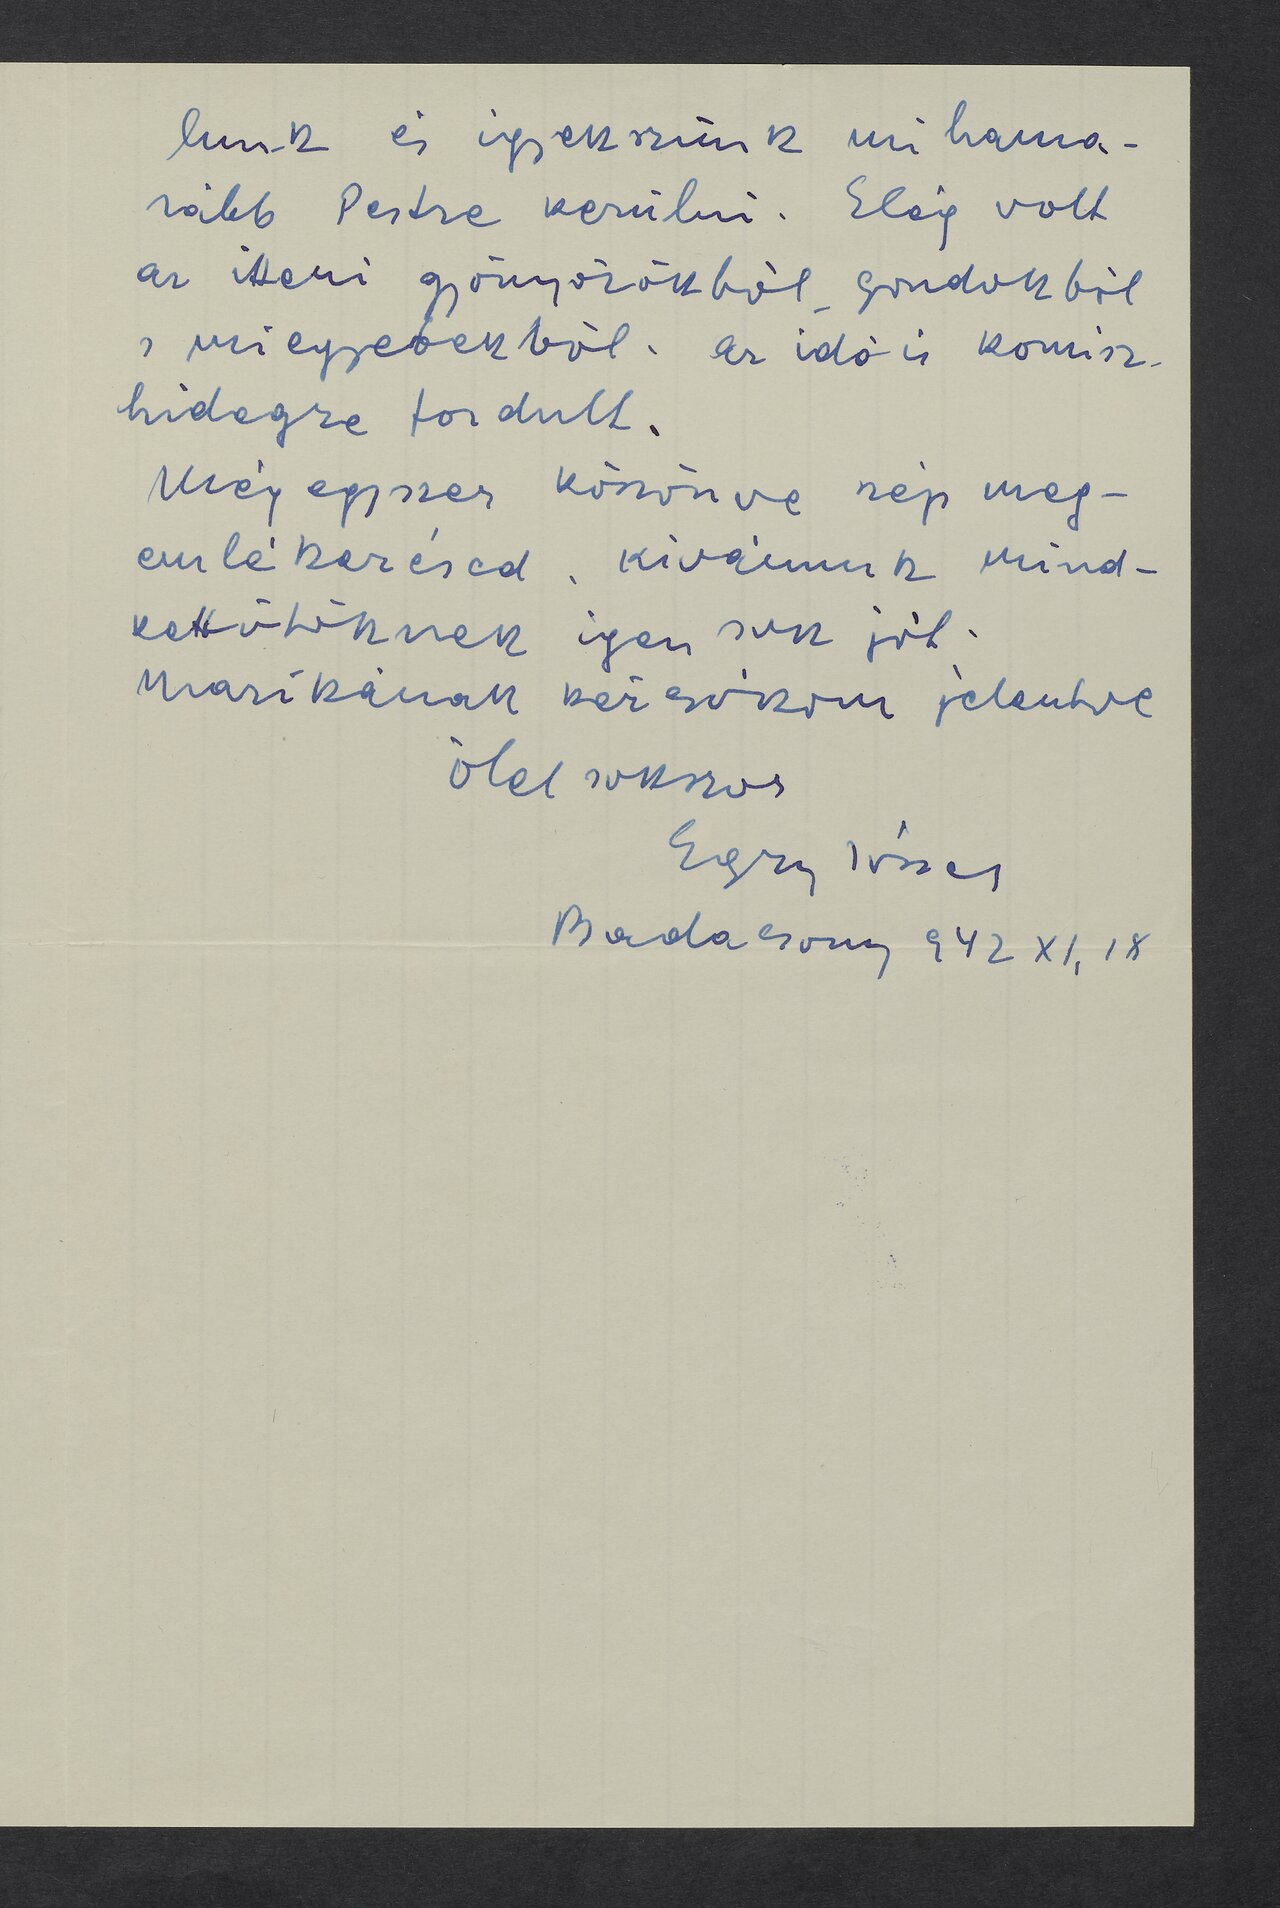 lunk és igyekszünk mi hama-
rább Pestre kerülni. Elég volt
az itteni gyönyörökből, gondokból
s miegyebekből. Az idő is komisz-
hidegre fordult.
Mégegyszer köszönve szép meg-
emlékezésed, kivánunk mind-
kettőtöknek igen sok jót.
Marikának kézcsókom jelentve
ölel sokszor
Egry József
Badacsony 942 XI, 18